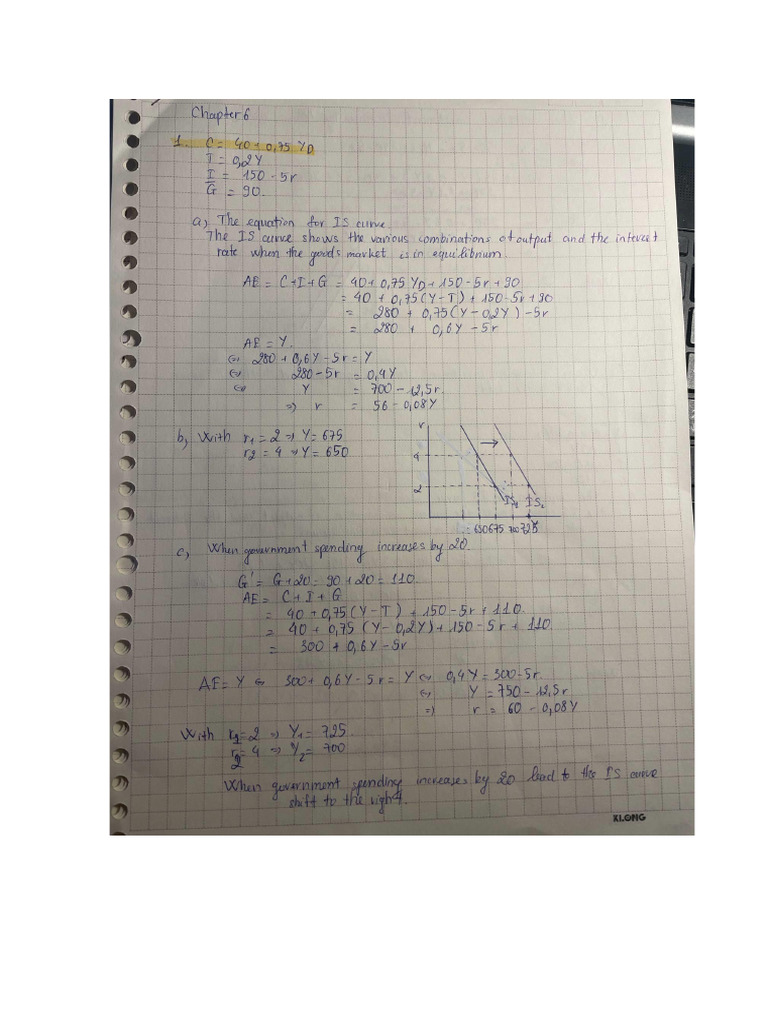 Chapter 6
1. C = 40 + 0,75 YD
T = 0,2Y
I = 150 - 5r
G = 90.
a) The equation for IS curve.
The IS curve shows the various combinations of output and the interest
rate when the goods market is in equilibrium.
AE = C+I+G = 40+0,75 YD + 150-5r+90
= 40 + 0,75(Y-T) + 150-5r+90
= 280 + 0,75(Y-0,2Y) -5r
= 280 + 0,6Y -5r
AE = Y.
⇔ 280 + 0,6Y - 5r = Y
⇔ 280 - 5r = 0,4Y
⇔ Y = 700 - 12,5r.
⇒ r = 56 - 0,08Y
b) With r1 = 2 ⇒ Y = 675
r2 = 4 ⇒ Y = 650
r
4
2
IS1 IS2
650 675 700 725 Y
c) When government spending increases by 20.
G' = G+20 = 90 + 20 = 110.
AE = C + I + G
= 40 + 0,75 (Y-T) + 150 - 5r + 110.
= 40 + 0,75 (Y - 0,2Y) + 150 - 5r + 110.
= 300 + 0,6Y - 5r
AE = Y ⇔ 300 + 0,6Y - 5r = Y ⇔ 0,4Y = 300-5r.
⇔ Y = 750 - 12,5r
⇒ r = 60 - 0,08Y
With r1 = 2 ⇒ Y1 = 725.
r2 = 4 ⇒ Y2 = 700
When government spending increases by 20 lead to the IS curve
shift to the right.
KLONG